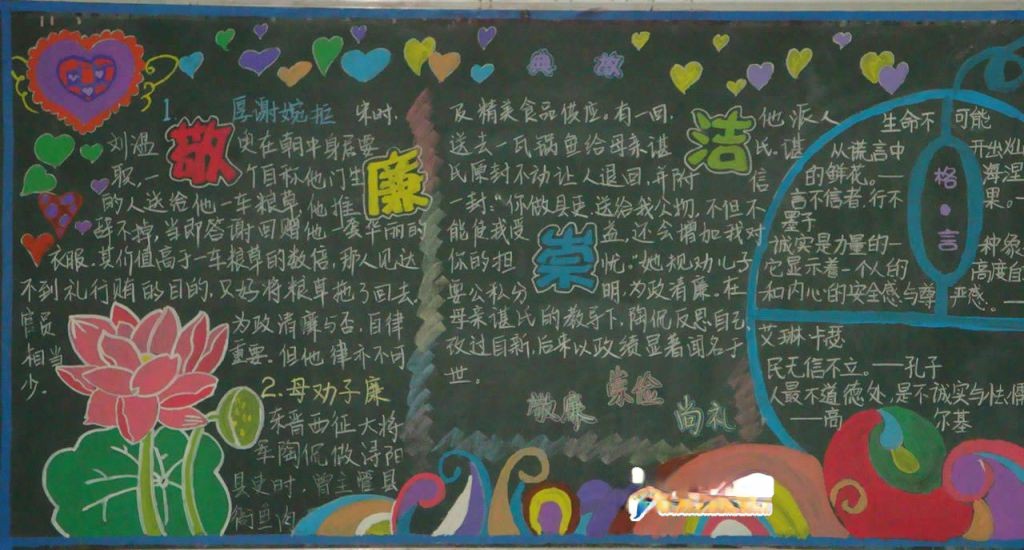 典故
敬
廉
崇
洁
1. 厚谢婉拒 宋时,
刘温 史在朝中身居要
取,一 个自称他门生
的人送给他一车粮草,他推
辞不掉,当即答谢回赠他一套华丽的
衣服,其价值高于一车粮草的数倍,那人见达
不到礼行贿的目的,又好将粮草拖了回去。
官员 为政清廉与否,自律
相当 重要。但他律亦不可
少。
2.母劝子廉
东晋西征大将
军陶侃做浔阳
县吏时,曾主管县
及精美食品供应。有一回,
他派人
送去一瓦锅鱼给母亲谌
氏,谌
氏原封不动让人退回,并附
信
一封:“你做县吏,送给我公物,不但不
能使我受 益,还会增加我对
你的担 忧。”她规劝儿子
要公私分 明,为政清廉。在
母亲谌氏的教导下,陶侃反思自己,
改过自新,后来以政绩显著闻名于
世。
敬廉
崇俭
尚礼
格·言
生命不可能
从谎言中 开出灿
的鲜花。——海涅
言不信者,行不果。—
墨子
诚实是力量的一种象
它显示着一个人的 高度自
和内心的安全感与尊严感。—
艾琳·卡瑟
民无信不立。——孔子
人最不道德处,是不诚实与怯懦
——高尔基